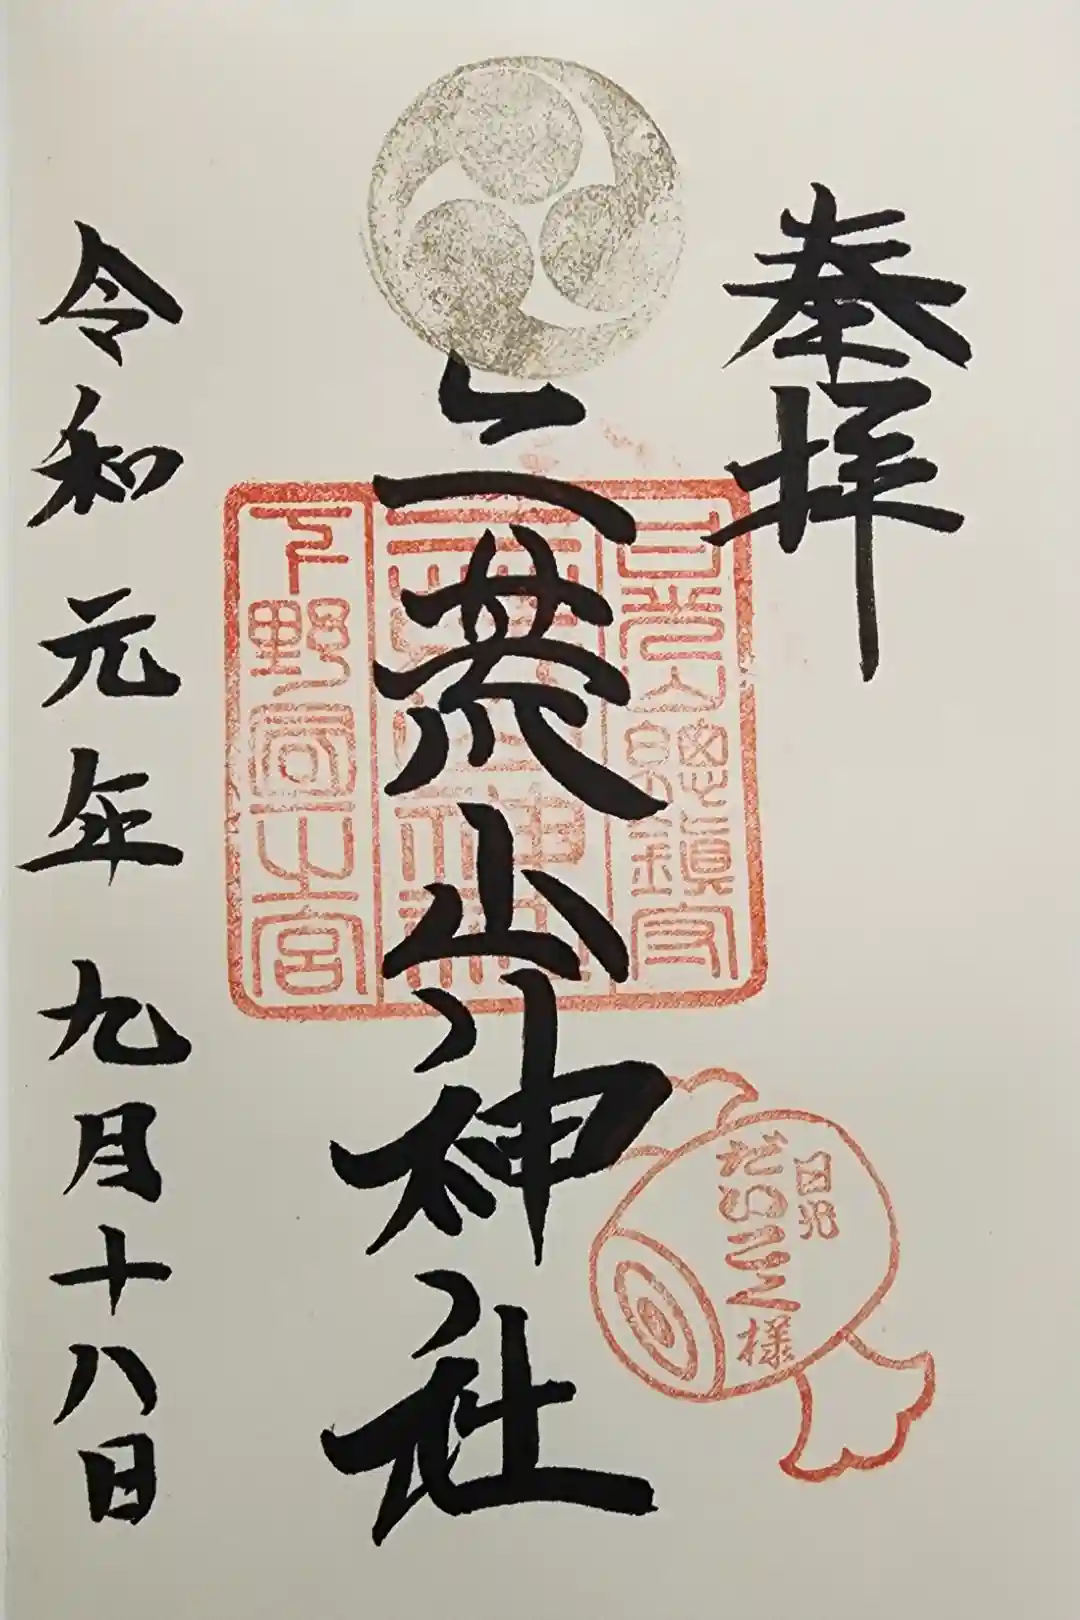 奉拝
日光山總鎮守
二荒山神社
二荒山神社
下野國一之宮
日光
だいこく様
令和元年九月十八日